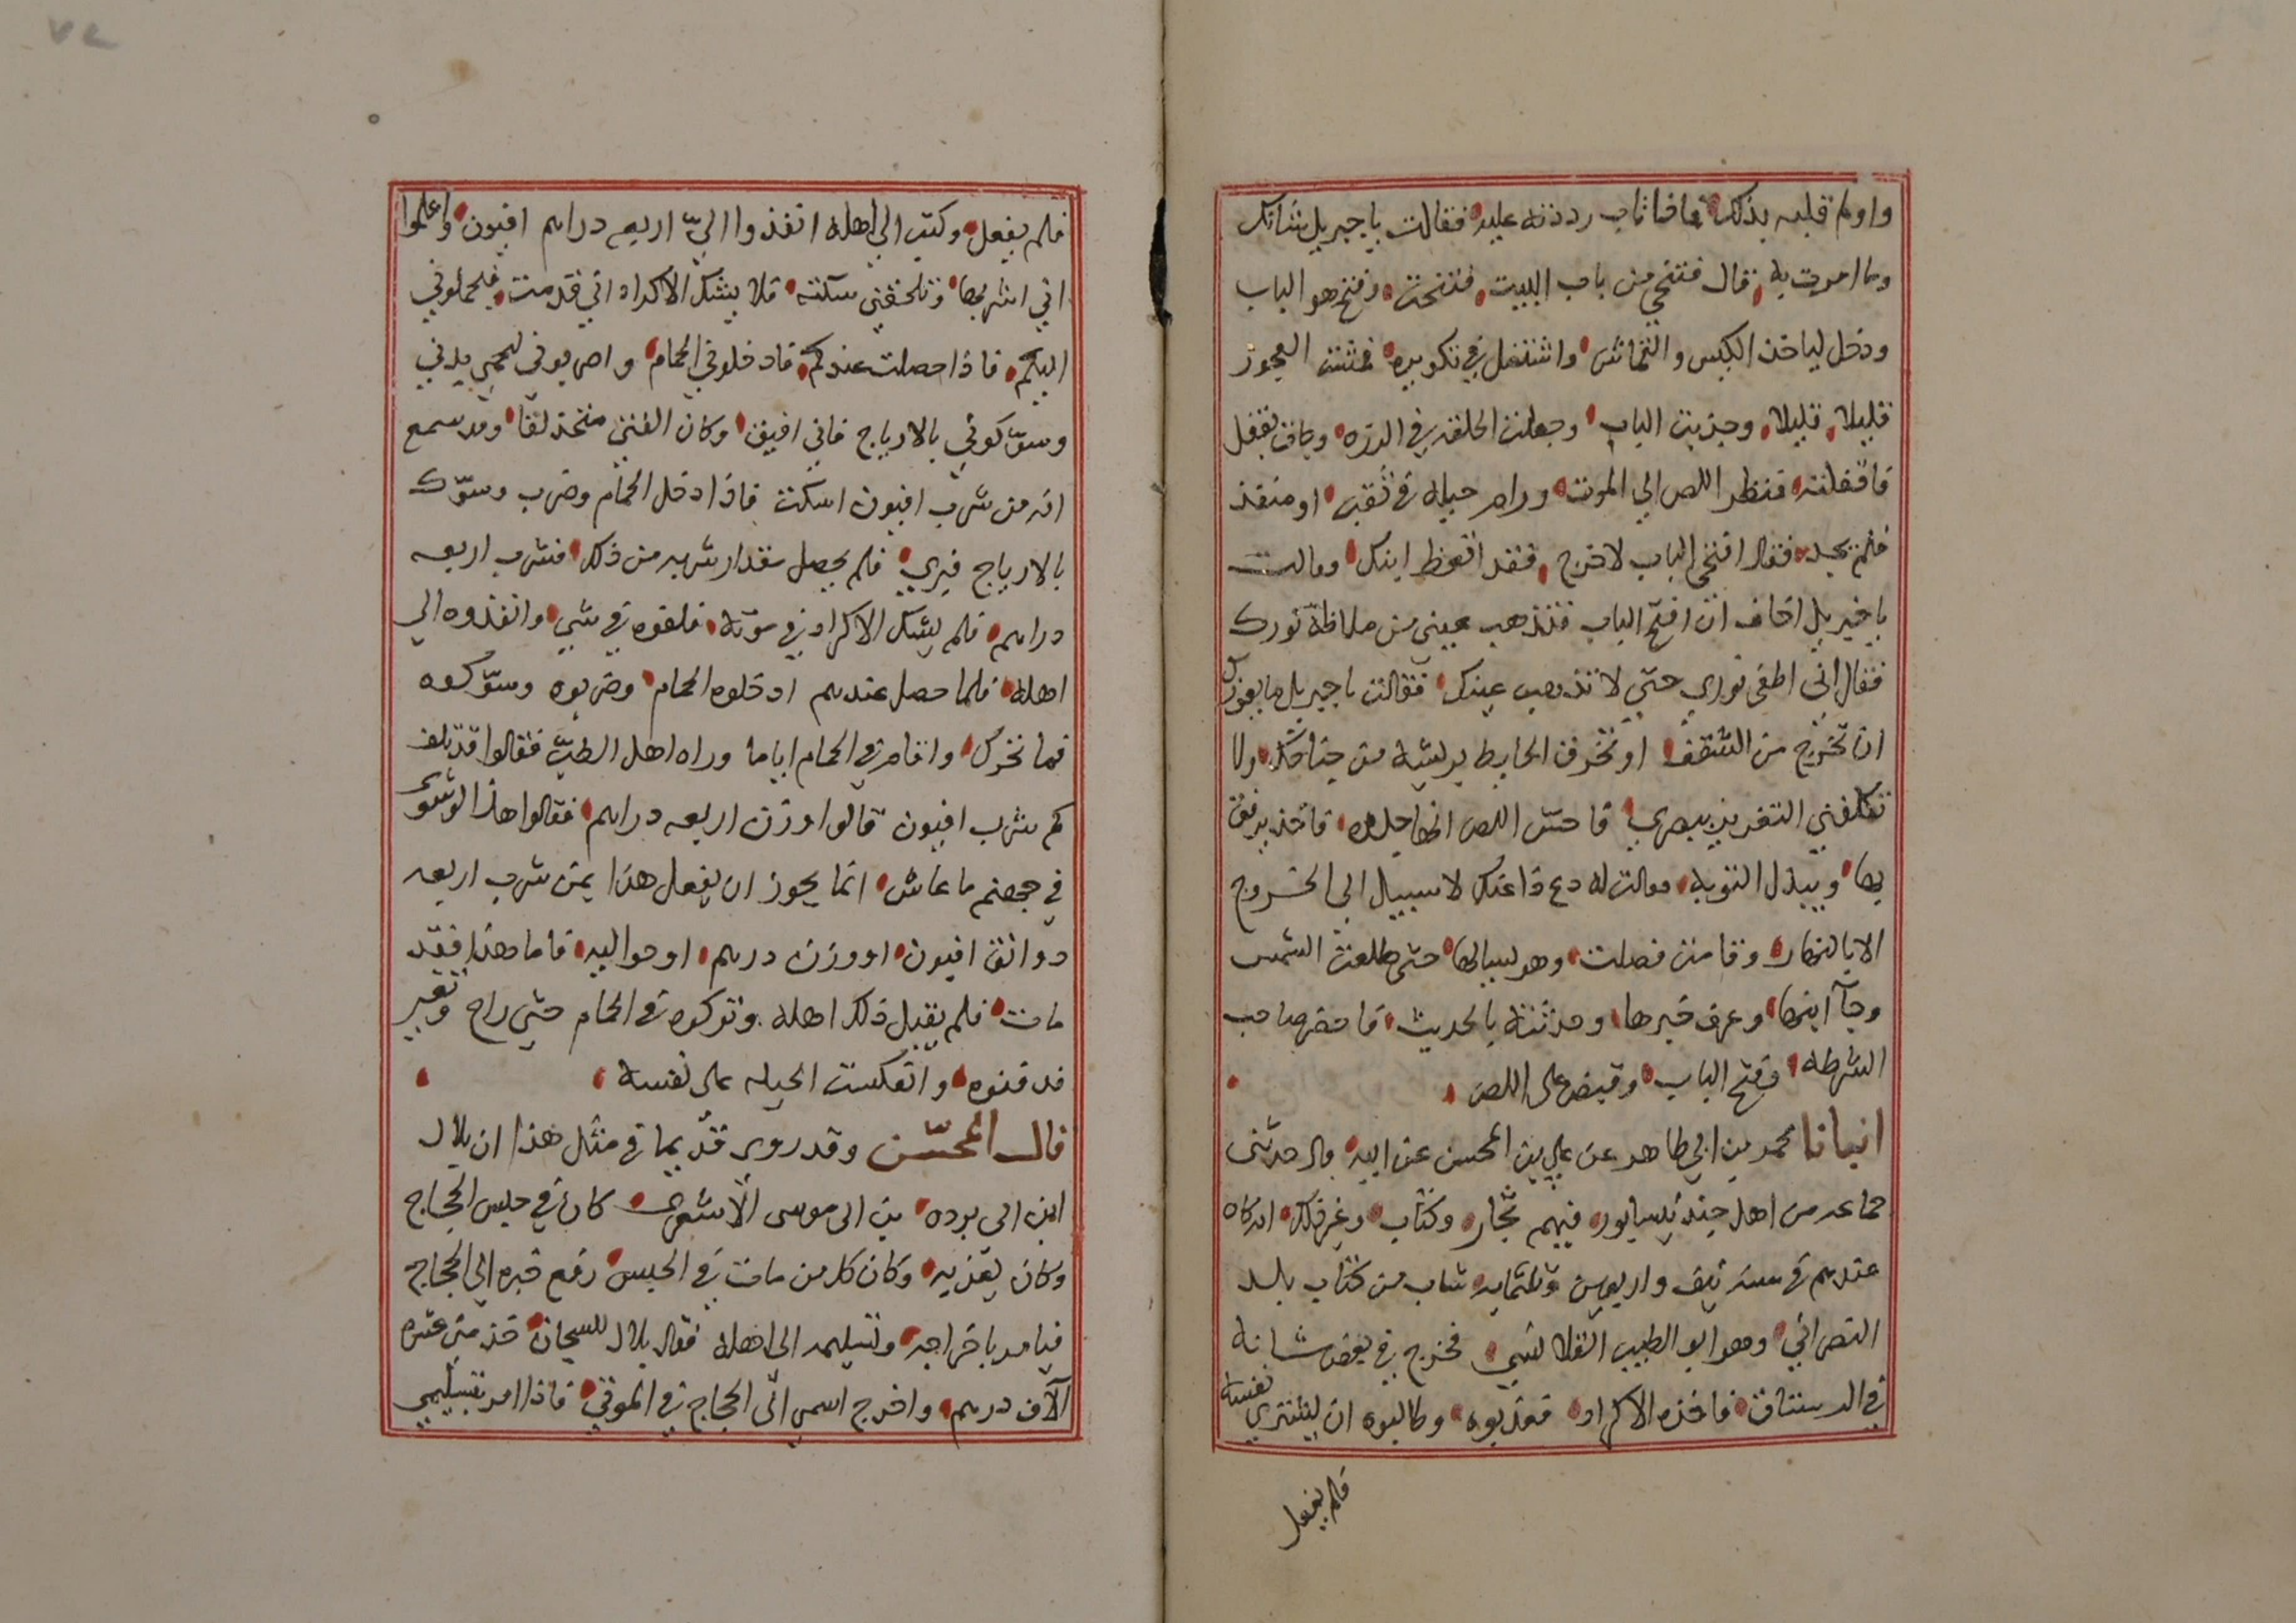 واولم قلبه بذلك فاذا تاب رددته عليه فقالت يا جبريل شانك
وما امرت به قال فتنحي من باب البيت فتنحت وفتح هو الباب
ودخل لياخذ الكيس والقماش واشتغل في تكويره فمشت العجوز
قليلا قليلا وجذبت الباب وجعلت الحلقة في الرزه وجات بقفل
فاقفلته فنظر اللص الي الموت ورام حيله في نقب او منفذ
فلم يجد فقال افتحي الباب لاخرج فقد اتعظ ابنك وقالت
يا جبريل اخاف ان افتح الباب فتذهب عيني من ملاحظة نورك
فقال اني اطفي نوري حتي لا تذهب عينك فقالت يا جبريل ما يعوزك
ان تخرج من السقف او تخرق الحايط بريشة من جناحك ولا
تكلفني التغرير ببصري فاحس اللص انها جلده فاخذ يرفق
بها ويبذل التوبه وقالت له دع ذا عنك لا سبيل الي الخروج
الا بالنهار وقامت فصلت وهو يسالها حتي طلعت الشمس
وجآ ابنها وعرف خبرها وحدثته بالحديث فاحضر صاحب
الشرطه وفتح الباب وقبض علي اللص
انبانا محمد بن ابي طاهر عن علي بن المحسن عن ابيه قال حدثني
جماعه من اهل جند نيسابور فيهم تجار وكتاب وغير ذلك انه كان
عندهم في سنة نيف واربعين وثلثمايه شاب من كتاب بلد
النصراني وهو ابو الطيب القلانسي فخرج في بعض شانه
في الرستاق فاخذه الاكراد فعذبوه وطالبوه ان يشتري نفسه
فلم يفعل
فلم يفعل وكتب الي اهله انفذوا الي اربعه دراهم افيون واعلموا
اني اشربها وتلحقني سكته فلا يشك الاكراد اني قد مت فيحملوني
اليكم فاذا حصلت عندكم فادخلوني الحمام واضربوني ليحمي بدني
وسوكوني بالايارج فاني افيق وكان الفتي متخلفا وقد سمع
انه من شرب افيون اسكت فاذا دخل الحمام وضرب وسوك
بالايارج فبري فلم يحصل مقدار شربه من ذلك فشرب اربعه
دراهم فلم يشك الاكراد في موته فلفوه في شي وانفذوه الي
اهله فلما حصل عندهم ادخلوه الحمام وضربوه وسوكوه
فما تحرك واقام في الحمام اياما وراه اهل الطب فقالوا قد تلف
كم شرب افيون قالوا وزن اربعه دراهم فقالوا هذا لو شوي
في جهنم ما عاش انما يجوز ان يفعل هذا بمن شرب اربعه
دوانق افيون او وزن درهم او حواليه فاما هذا فقد
مات فلم يقبل ذلك اهله وتركوه في الحمام حتي راح وتغير
فدفنوه وانعكست الحيله علي نفسه
قال المحسن وقد روي قديما في مثل هذا ان بلال
ابن ابي برده بن ابي موسي الاشعري كان في حبس الحجاج
وكان يعذبه وكان كل من مات في الحبس رفع خبره الي الحجاج
فيامر باخراجه وتسليمه الي اهله فقال بلال للسجان خذ مني عشره
آلاف درهم واخرج اسمي الي الحجاج في الموتي فاذا امر بتسليمي